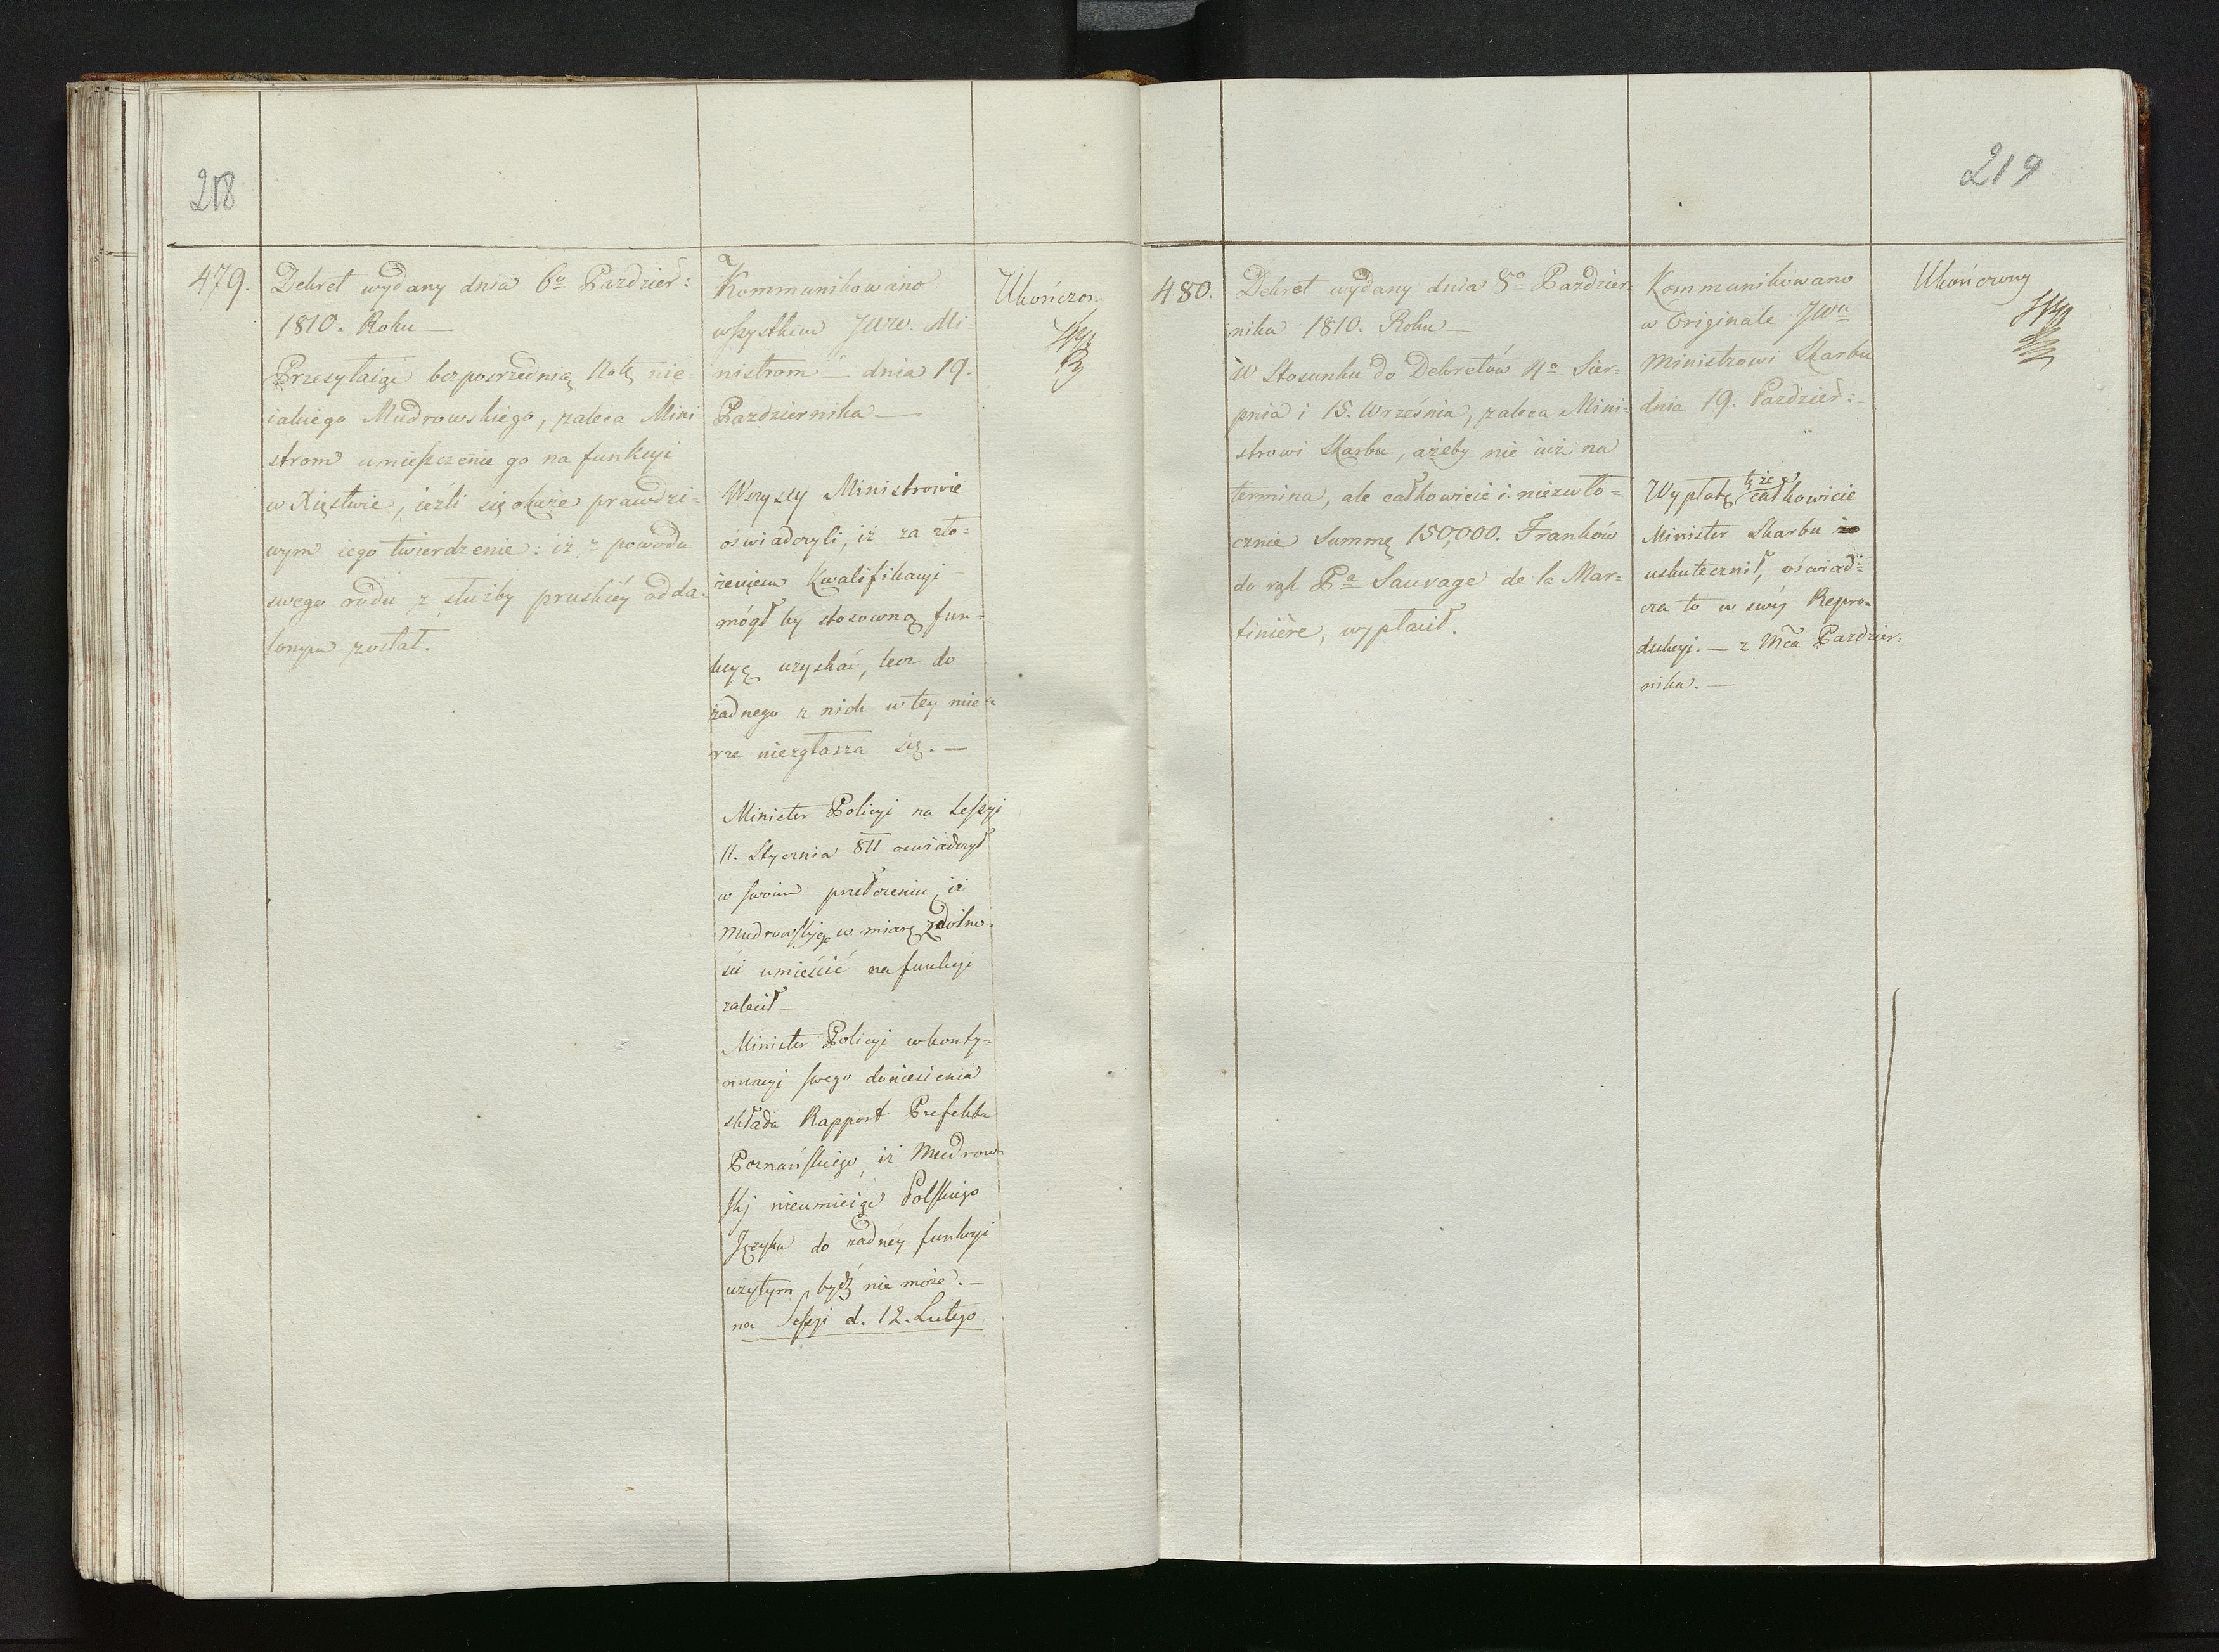 218
479.
Dekret wydany dnia 6o Pazdzier:
1810. Roku —
Przesyłaiąc bezposrzednią Notę nie=
iakiego Mudrowskiego, zaleca Mini
strom umieszczenie go na funkcyi
w Xięstwie, ieźli się okaże prawdzi=
wym iego twierdzenie: iż z powodu
swego rodu z służby pruskiéy odda=
lonym został.
Kommunikowano
wszystkim JWW. Mi=
nistrom — dnia 19.
Pazdziernika —
Wszyscy Ministrowie
oświadczyli, iż za zło=
żeniem Kwalifikacyi
mógł by stosowną fun=
kcyę uzyskać, lecz do
żadnego z nich w tey mie=
rze niezgłasza się. —
Minister Policyi na Sessyi
11. Stycznia 811 oswiadczył
w swoim przełożeniu, iż
Mudrowskiego w miarę zdolno=
ści umieścić na funkcyi
zalecił —
Minister Policyi w konty=
nuacyi swego doniesienia
składa Rapport Prefekta
Poznańskiego, iż Mudrow=
ski nieumieiąc Polskiego
Języka do żadnéy funkcyi
użytym bydź nie może. —
na Sessyi d. 12. Lutego
Ukończon.
219
480.
Dekret wydany dnia 8o Pazdzier=
nika 1810. Roku —
W Stosunku do Dekretów 4o Sier=
pnia i 15. Września, zaleca Mini=
strowi Skarbu, ażeby nie iuż na
termina, ale całkowicie i niezwło=
cznie Summę 150,000. Franków
do rąk Pa Sauvage de la Mar=
tinière, wypłacił.
Kommunikowano
w Originale JWu
Ministrowi Skarbu
dnia 19. Pazdzier:
tęże
Wypłatę całkowicie
Minister Skarbu
uskutecznił, oświad=
cza to w swéj Repro=
dukcyi. — z Mca Pazdzier=
nika. —
Ukończony